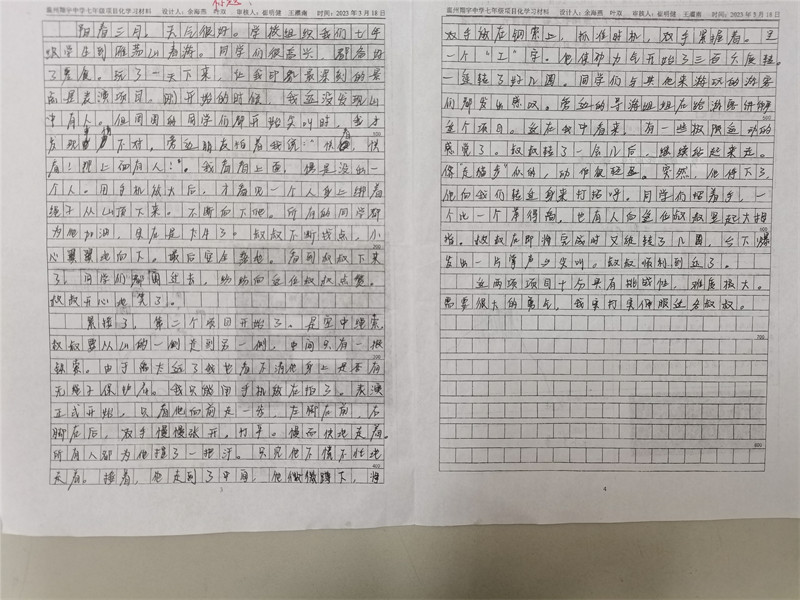 标题：
温州翔宇中学七年级项目化学习材料 设计人：金海燕 叶双 审核人：崔明健 王疆南 时间：2023年3月18日
阳春三月，天气很好。学校组织我们七年
级学生到雁荡山春游。同学们很高兴，都备好
了零食。玩了一天下来，让我印象最深刻的景
点是表演项目。刚开始的时候，我还没发现山
中有人。但周围的同学们都开始尖叫时，我才
发现事情不对。旁边朋友怕着我说：“快看，快
看！那上面有人！”。我看着上面，愣是没出一
个人。用手机放大后，才看见一个人身上绑着
绳子从山顶下来。不断向下爬。所有的同学都
为他加油，
叔叔不断找点，小
心翼翼地向下。最后安全落地。看到叔叔下来
了，同学们都围过去，
叔叔开心地笑了。
紧接了，第二个项目开始了。是空中绳索，
叔叔要从山的一侧走到另一侧，中间只有一根
铁索。由于离太远了我也看不清他身上是否有
无绳子保护着。我只能用手机放在拍了。表演
正式开始，只看他向前走一步，左脚在前，右
脚在后，双手慢慢张开，打平。慢而快地走着。
所有人都为他捏了一把汗。只见他不慌不忙地
走着。接着，他走到了中间，他微微蹲下，将
3
温州翔宇中学七年级项目化学习材料 设计人：金海燕 叶双 审核人：崔明健 王疆南 时间：2023年3月18日
双手放在钢索上，抓准时机，双手紧握着。呈
一个“工”字。他使劲力气开始了三百六度转。
一连转了好几圈。同学们与其他来游玩的游客
们都发出感叹。旁边的导游姐姐在给游客讲解
这个项目。这在我中看来，有一些极限运动的
感觉了。叔叔转了一会儿后，继续站起来走。
像“走猫步”似的，动作很轻盈。突然，他停下了，
他向我们转过身来打招呼。同学们招着手，一
个比一个举得高，也有人向这位叔叔竖起大拇
指。叔叔在即将完成时又继转了几圈，台下爆
发出一片掌声与尖叫。叔叔顺利到边了。
这两项项目十分具有挑战性，难度极大。
需要很大的勇气，我实打实佩服这名叔叔。
4